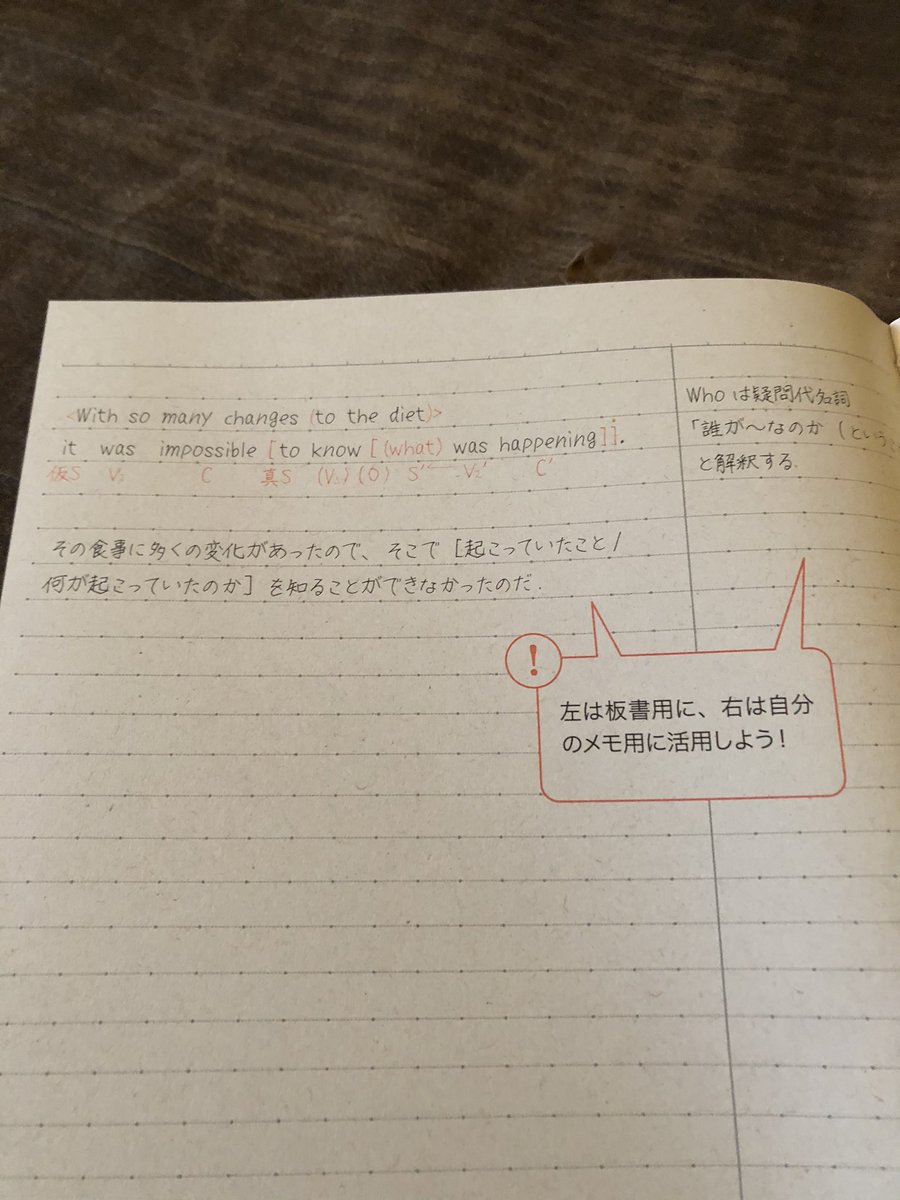 <With so many changes (to the diet)>
it was impossible [to know [(what) was happening]].
仮S V₂ C 真S (V₃) (O) S′ V₂′ C′
その食事に多くの変化があったので、そこで[起こっていたこと/
何が起こっていたのか]を知ることができなかったのだ.
Whoは疑問代名詞
「誰が〜なのか(という
と解釈する.
!
左は板書用に、右は自分
のメモ用に活用しよう!